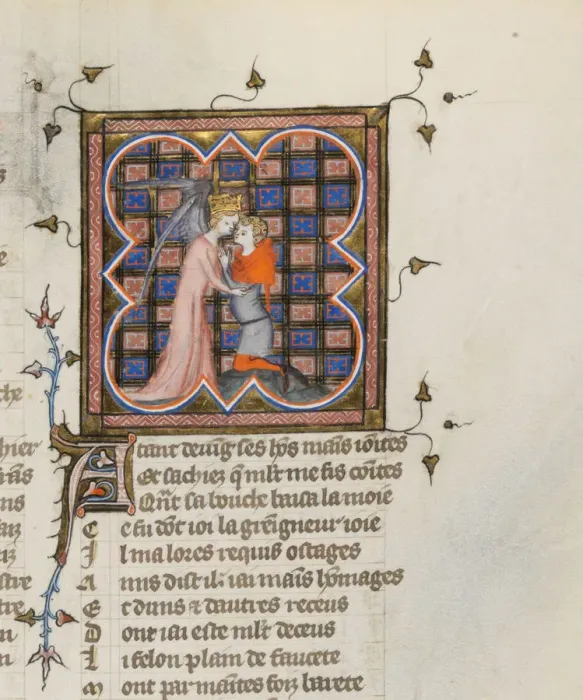 che
hier
ns
stre
tre
Atant deuīg ses hōs mains iōites
Et sachiez q̄ mlt me fis cōites
Qn̄t sa bouche baisa la moie
Ce fu dōt ioi la greigneur ioie
Il ma lores requis ostages
Amis dist il iai mains hōmages
Et duns & dautres receus
Dont iai este mlt deceus
Li felon plain de faucete
Mont par maintes foiz barete